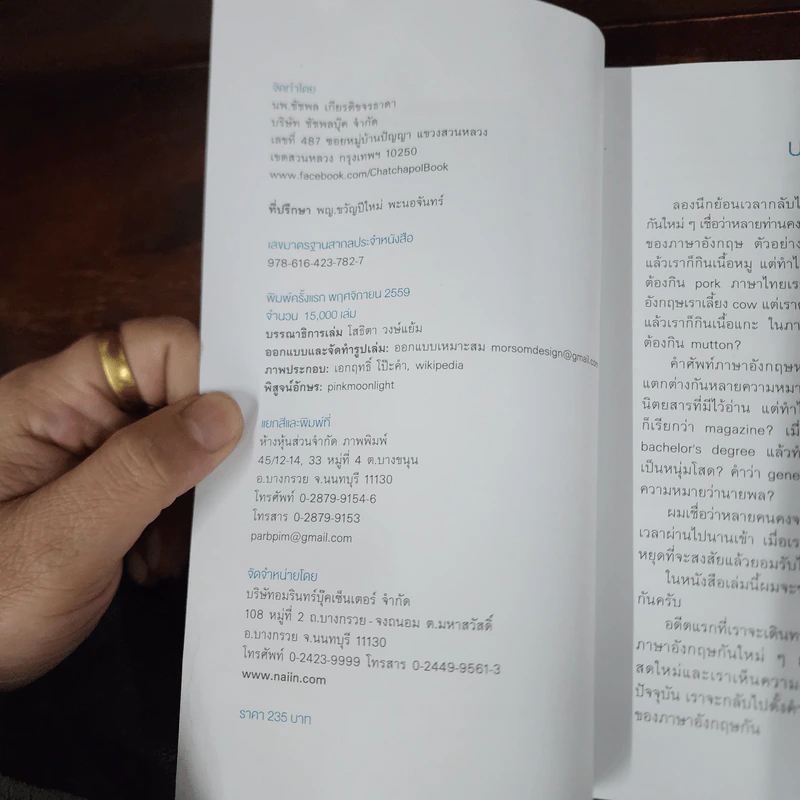 จัดทำโดย
นพ.ชัชพล เกียรติขจรธาดา
บริษัท ชัชพลบุ๊ค จำกัด
เลขที่ 487 ซอยหมู่บ้านปัญญา แขวงสวนหลวง
เขตสวนหลวง กรุงเทพฯ 10250
www.facebook.com/ChatchapolBook
ที่ปรึกษา พญ.ขวัญปีใหม่ พะนอจันทร์
เลขมาตรฐานสากลประจำหนังสือ
978-616-423-782-7
พิมพ์ครั้งแรก พฤศจิกายน 2559
จำนวน 15,000 เล่ม
บรรณาธิการเล่ม โสธิดา วงษ์แย้ม
ออกแบบและจัดทำรูปเล่ม: ออกแบบเหมาะสม morsomdesign@gmail.com
ภาพประกอบ: เอกฤทธิ์ โป๊ะคำ, wikipedia
พิสูจน์อักษร: pinkmoonlight
แยกสีและพิมพ์ที่
ห้างหุ้นส่วนจำกัด ภาพพิมพ์
45/12-14, 33 หมู่ที่ 4 ต.บางขนุน
อ.บางกรวย จ.นนทบุรี 11130
โทรศัพท์ 0-2879-9154-6
โทรสาร 0-2879-9153
parbpim@gmail.com
จัดจำหน่ายโดย
บริษัทอมรินทร์บุ๊คเซ็นเตอร์ จำกัด
108 หมู่ที่ 2 ถ.บางกรวย - จงถนอม ต.มหาสวัสดิ์
อ.บางกรวย จ.นนทบุรี 11130
โทรศัพท์ 0-2423-9999 โทรสาร 0-2449-9561-3
www.naiin.com
ราคา 235 บาท
ลองนึกย้อนเวลากลับไ
กันใหม่ ๆ เชื่อว่าหลายท่านคง
ของภาษาอังกฤษ ตัวอย่าง
แล้วเราก็กินเนื้อหมู แต่ทำไ
ต้องกิน pork ภาษาไทยเร
อังกฤษเราเลี้ยง cow แต่เรา
แล้วเราก็กินเนื้อแกะ ในภา
ต้องกิน mutton?
คำศัพท์ภาษาอังกฤษห
แตกต่างกันหลายความหมา
นิตยสารที่มีไว้อ่าน แต่ทำไ
ก็เรียกว่า magazine? เมื่
bachelor's degree แล้วท
เป็นหนุ่มโสด? คำว่า gene
ความหมายว่านายพล?
ผมเชื่อว่าหลายคนคงจ
เวลาผ่านไปนานเข้า เมื่อเร
หยุดที่จะสงสัยแล้วยอมรับไ
ในหนังสือเล่มนี้ผมจะ
กันครับ
อดีตแรกที่เราจะเดินท
ภาษาอังกฤษกันใหม่ ๆ
สดใหม่และเราเห็นความ
ปัจจุบัน เราจะกลับไปตั้งคำ
ของภาษาอังกฤษกัน